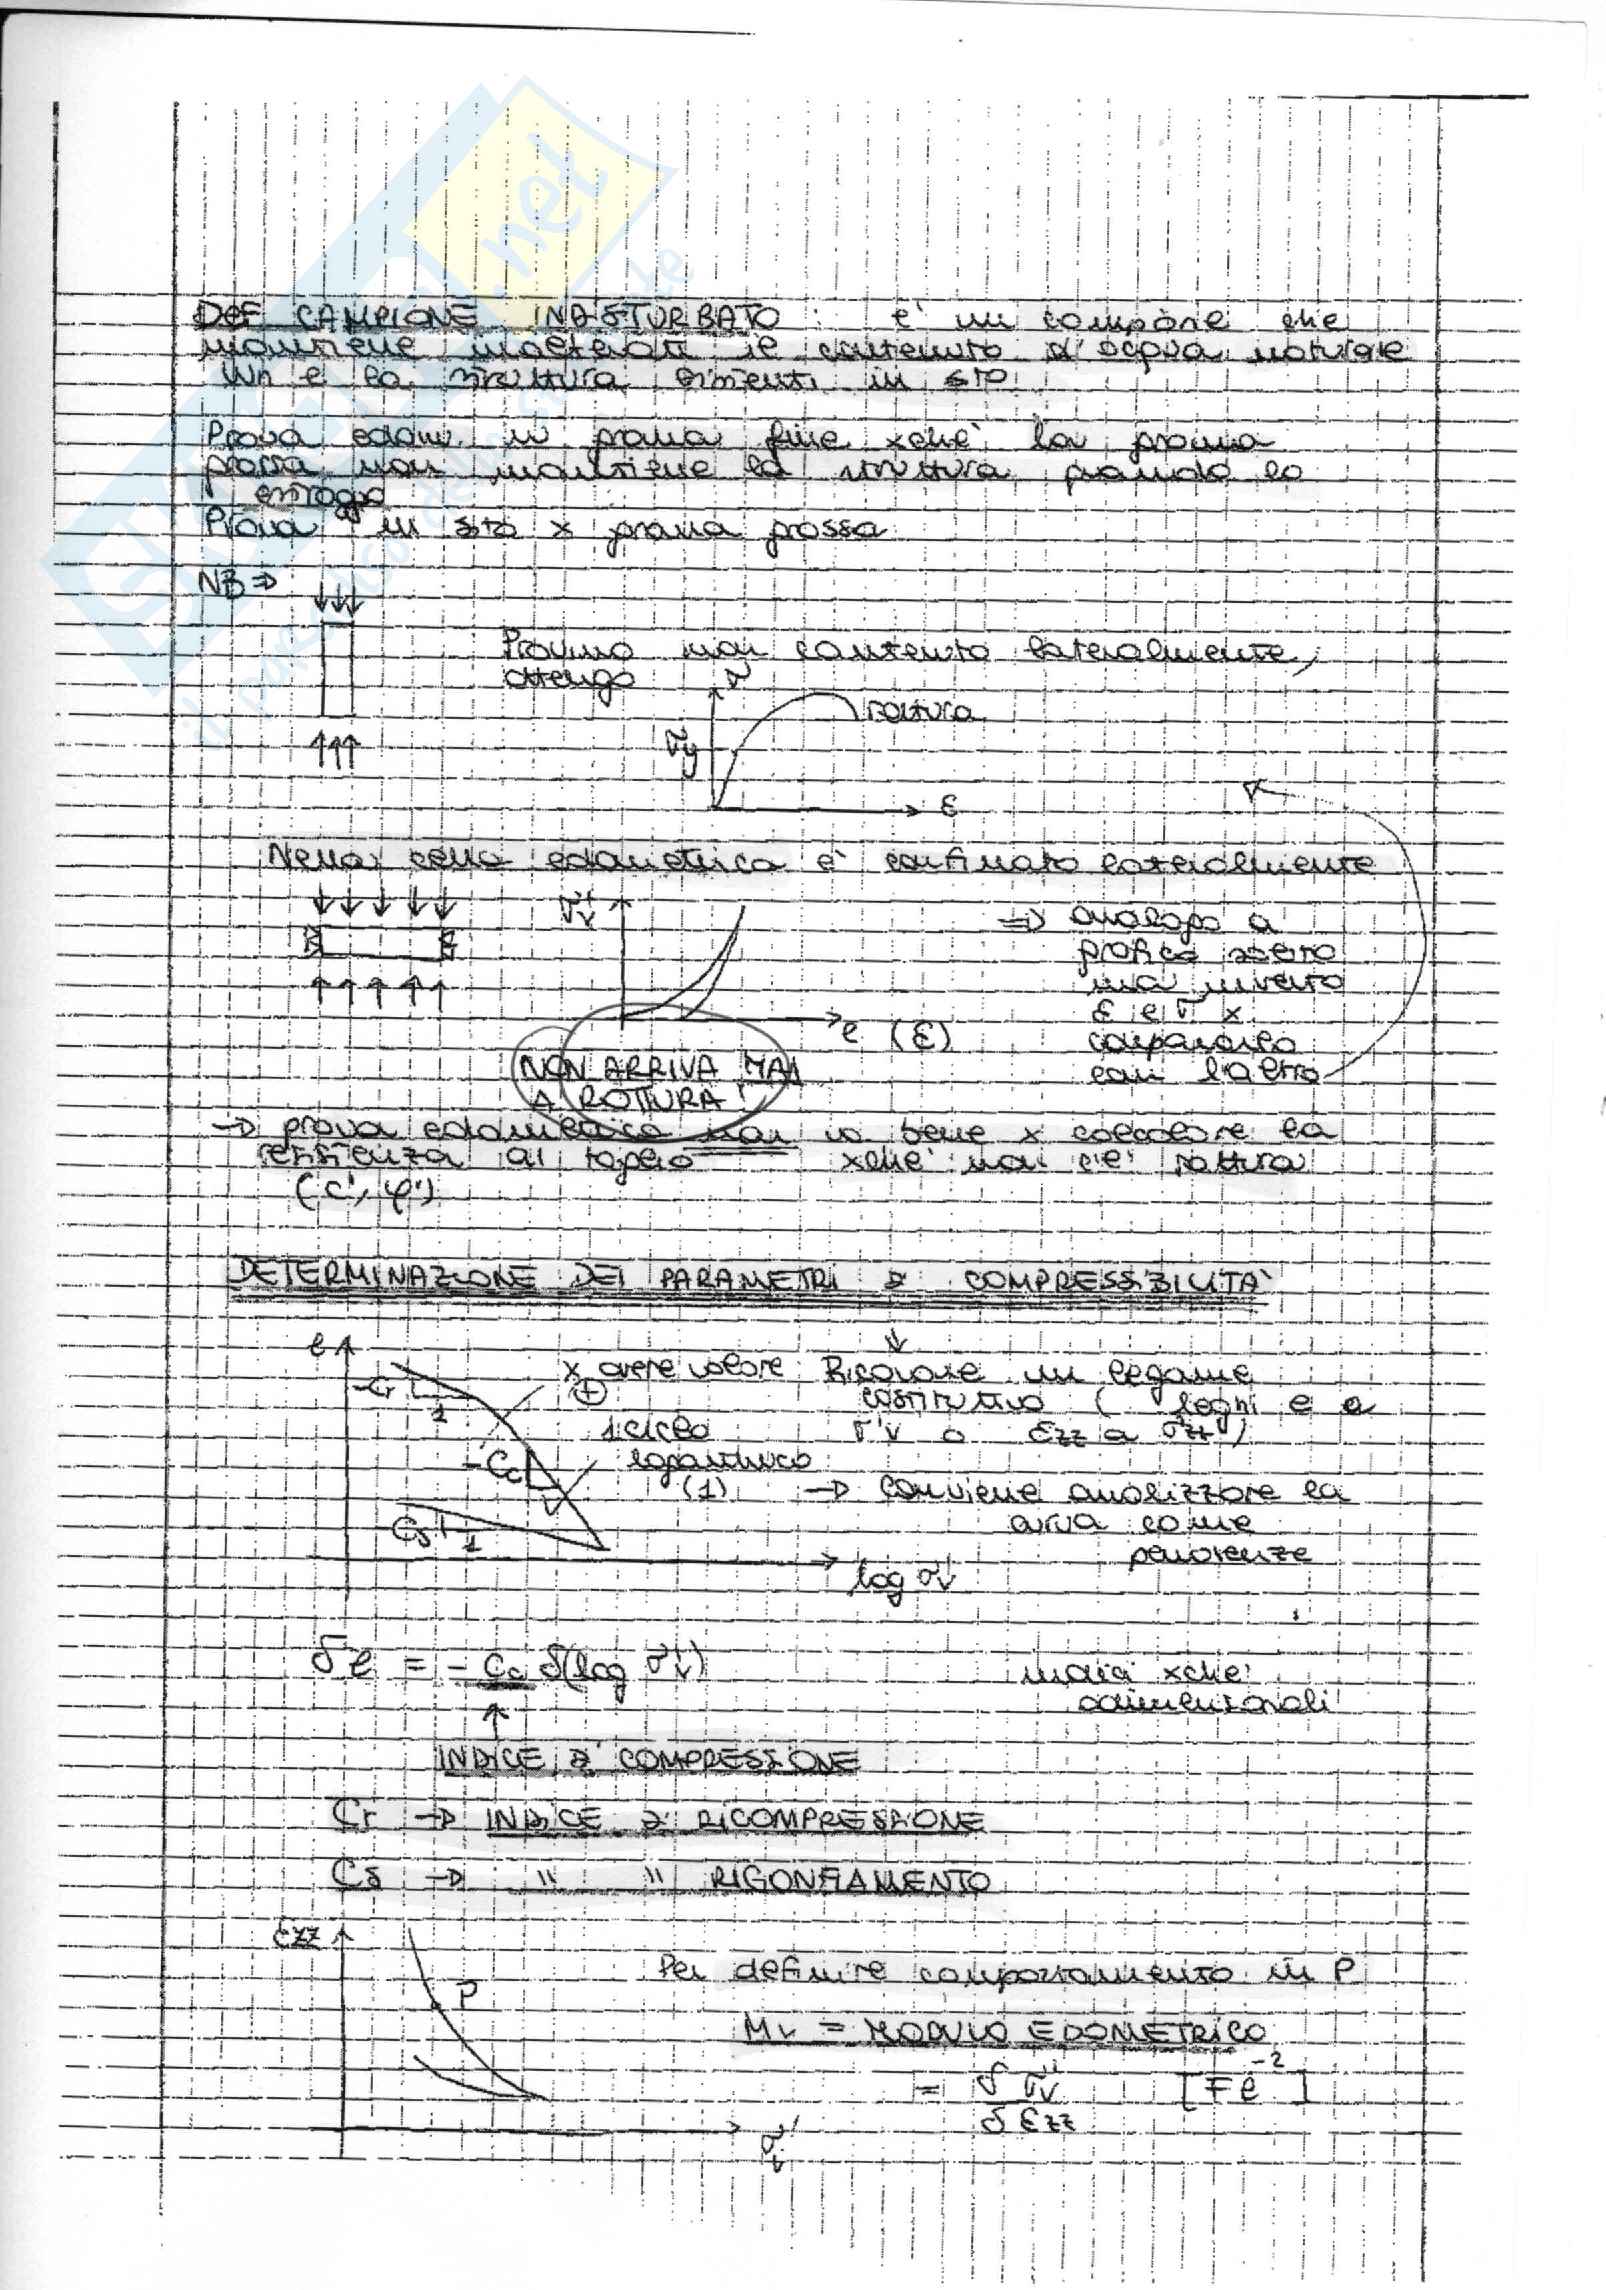 DEF CAMPIONE INDISTURBATO : è un campione che
mantiene inalterati il contenuto d'acqua naturale
Wn e la struttura esistenti in sito
Prova edom. in grana fine xchè la grana
grossa non mantiene la struttura quando lo
estraggo
Prova in sito x grana grossa
NB ⇒
Provino non contenuto lateralmente,
ottengo
σ
rottura
σy
ε
Nella cella edometrica è confinato lateralmente
σ'v
⇒ analogo a
grafico
ma inverto
ε e σ x
compararlo
con l'altro
e (ε)
NON ARRIVA MAI
A ROTTURA!
→ prova edometrica non va bene x calcolare la
resistenza al taglio xchè non c'è rottura
(c', φ')
DETERMINAZIONE DEI PARAMETRI DI COMPRESSIBILITÀ
e
-Cr
1
x avere valore
(+)
Ricavare un legame
costitutivo ( leghi e a
σ'v o εzz a σ'zz )
1 ciclo
logaritmico
(1)
-Cc
→ conviene analizzare la
curva come
pendenze
Cs
1
log σ'v
δe = - Cc δ(log σ'v)
indici xchè
adimensionali
INDICE DI COMPRESSIONE
Cr → INDICE DI RICOMPRESSIONE
Cs → " " RIGONFIAMENTO
εzz
P
Per definire comportamento in P
Mv = MODULO EDOMETRICO
= δ σ'v / δ εzz [F l⁻²]
σ'v